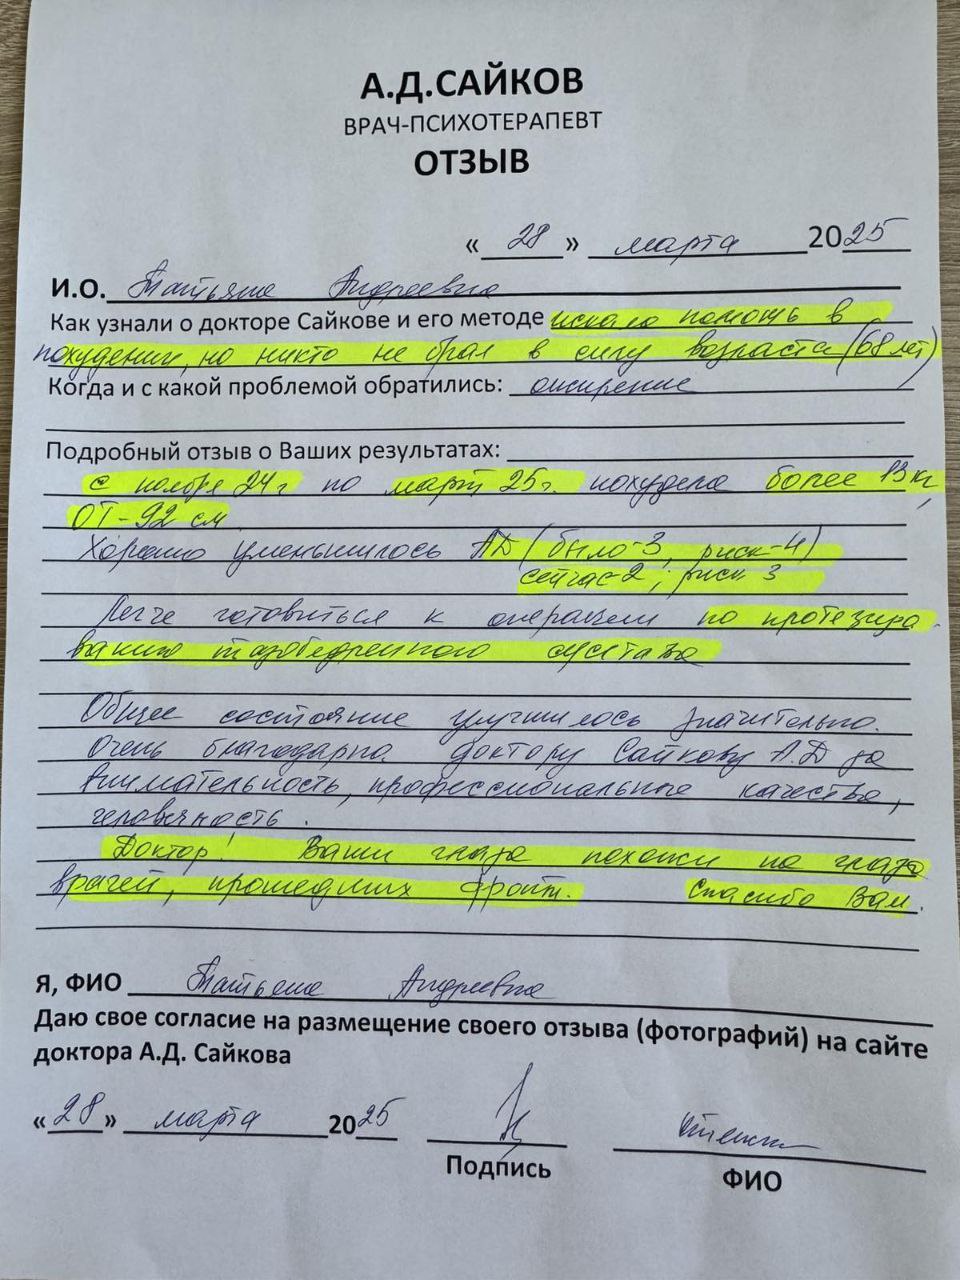 А.Д.САЙКОВ
ВРАЧ-ПСИХОТЕРАПЕВТ
ОТЗЫВ
« 28 » марта 2025
И.О. Татьяна Андреевна
Как узнали о докторе Сайкове и его методе искала помощь в
похудении, но никто не брал в силу возраста (68 лет)
Когда и с какой проблемой обратились: ожирение
Подробный отзыв о Ваших результатах:
С ноября 24г по март 25г. похудела более 13 кг,
ОТ-92 см
Хорошо уменьшилось АД (было-3, риск-4)
сейчас-2, риск 3
Легче готовиться к операции по протезиро-
ванию тазобедренного сустава
Общее состояние улучшилось значительно.
Очень благодарна доктору Сайкову А.Д за
внимательность, профессиональные качества,
человечность.
Доктор! Ваши глаза похожи на глаза
врачей, прошедших фронт. Спасибо Вам.
Я, ФИО Татьяна Андреевна
Даю свое согласие на размещение своего отзыва (фотографий) на сайте
доктора А.Д. Сайкова
« 28 » марта 2025
Подпись
ФИО